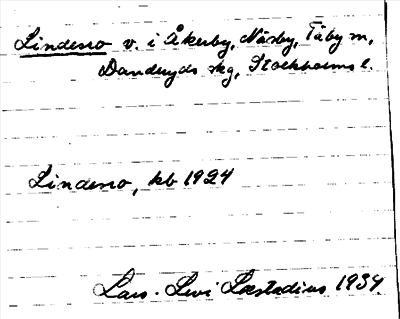 Lindesro v. i Åkerby, Näsby, Täby sn,
Danderyds skg, Stockholms l.
Lindesro, kb 1924
Lars-Levi Læstadius 1934.